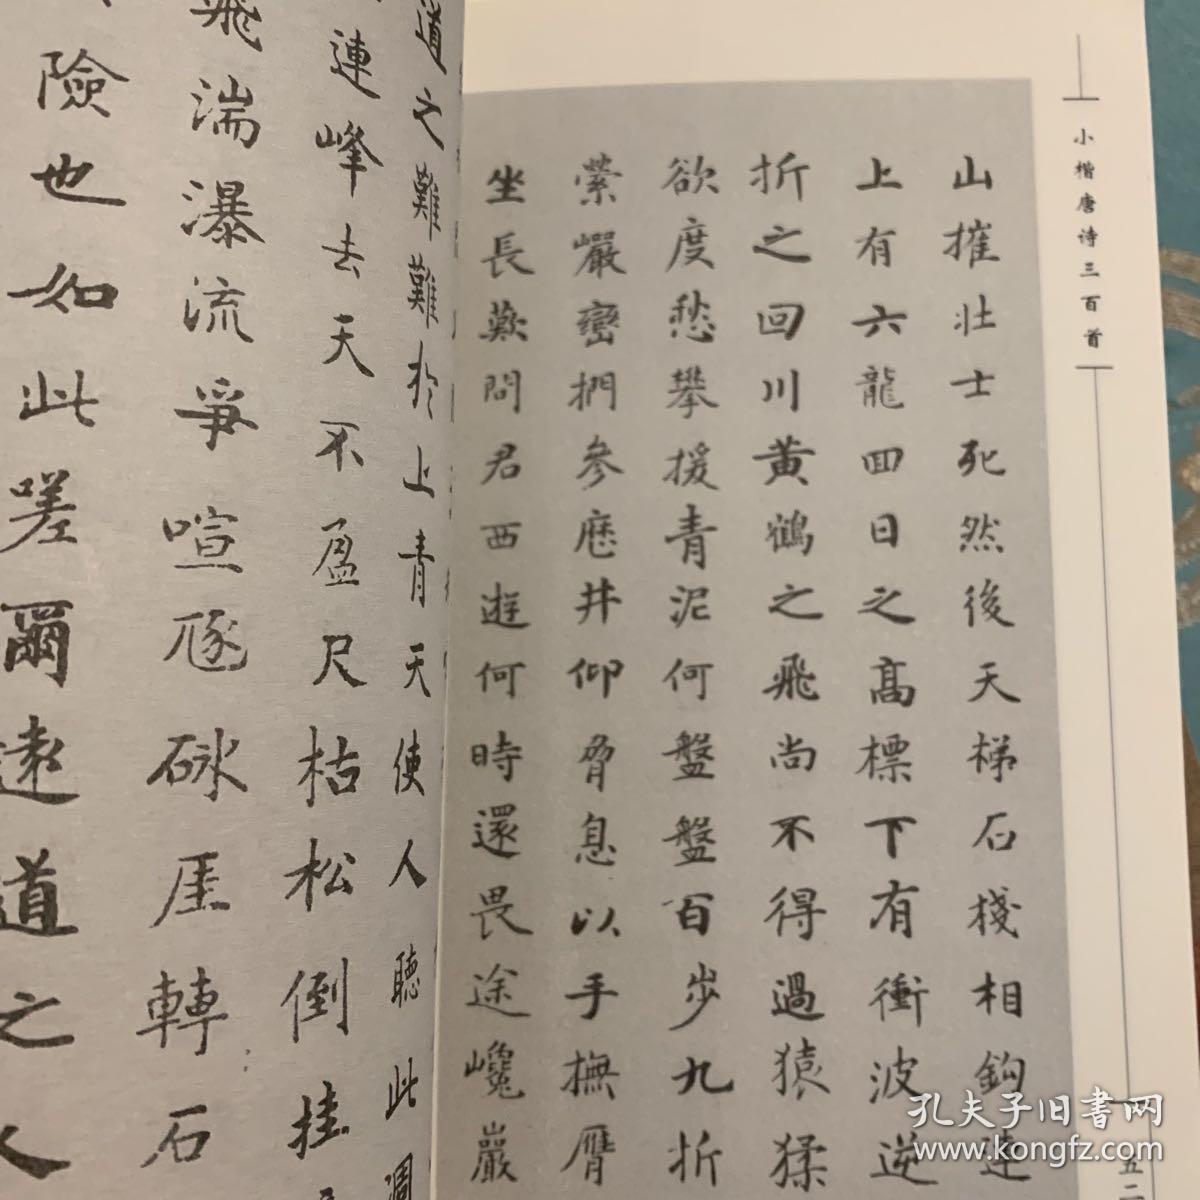 小楷唐诗三百首
五二
山摧壯士死然後天梯石棧相鈎連
上有六龍回日之高標下有衝波逆
折之回川黄鶴之飛尚不得過猿猱
欲度愁攀援青泥何盤盤百步九折
縈巖巒捫參歷井仰脅息以手撫膺
坐長歎問君西遊何時還畏途巉巖
道之難難於上青天使人聽此凋
連峰去天不盈尺枯松倒挂
飛湍瀑流爭喧豗砯厓轉石
險也如此嗟爾遠道之人
孔夫子旧书网
www.kongfz.com